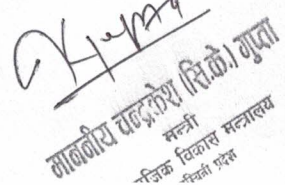 माननीय चन्द्रकेश (सि.के.) गुप्ता
मन्त्री
विकास मन्त्रालय
प्रदेश